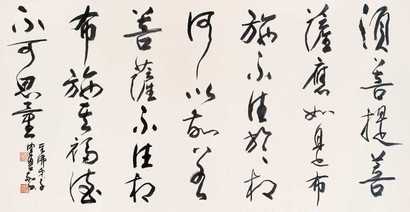 須菩提菩
薩應如是布
施不住於相
何以故若
菩薩不住相
布施其福德
不可思量